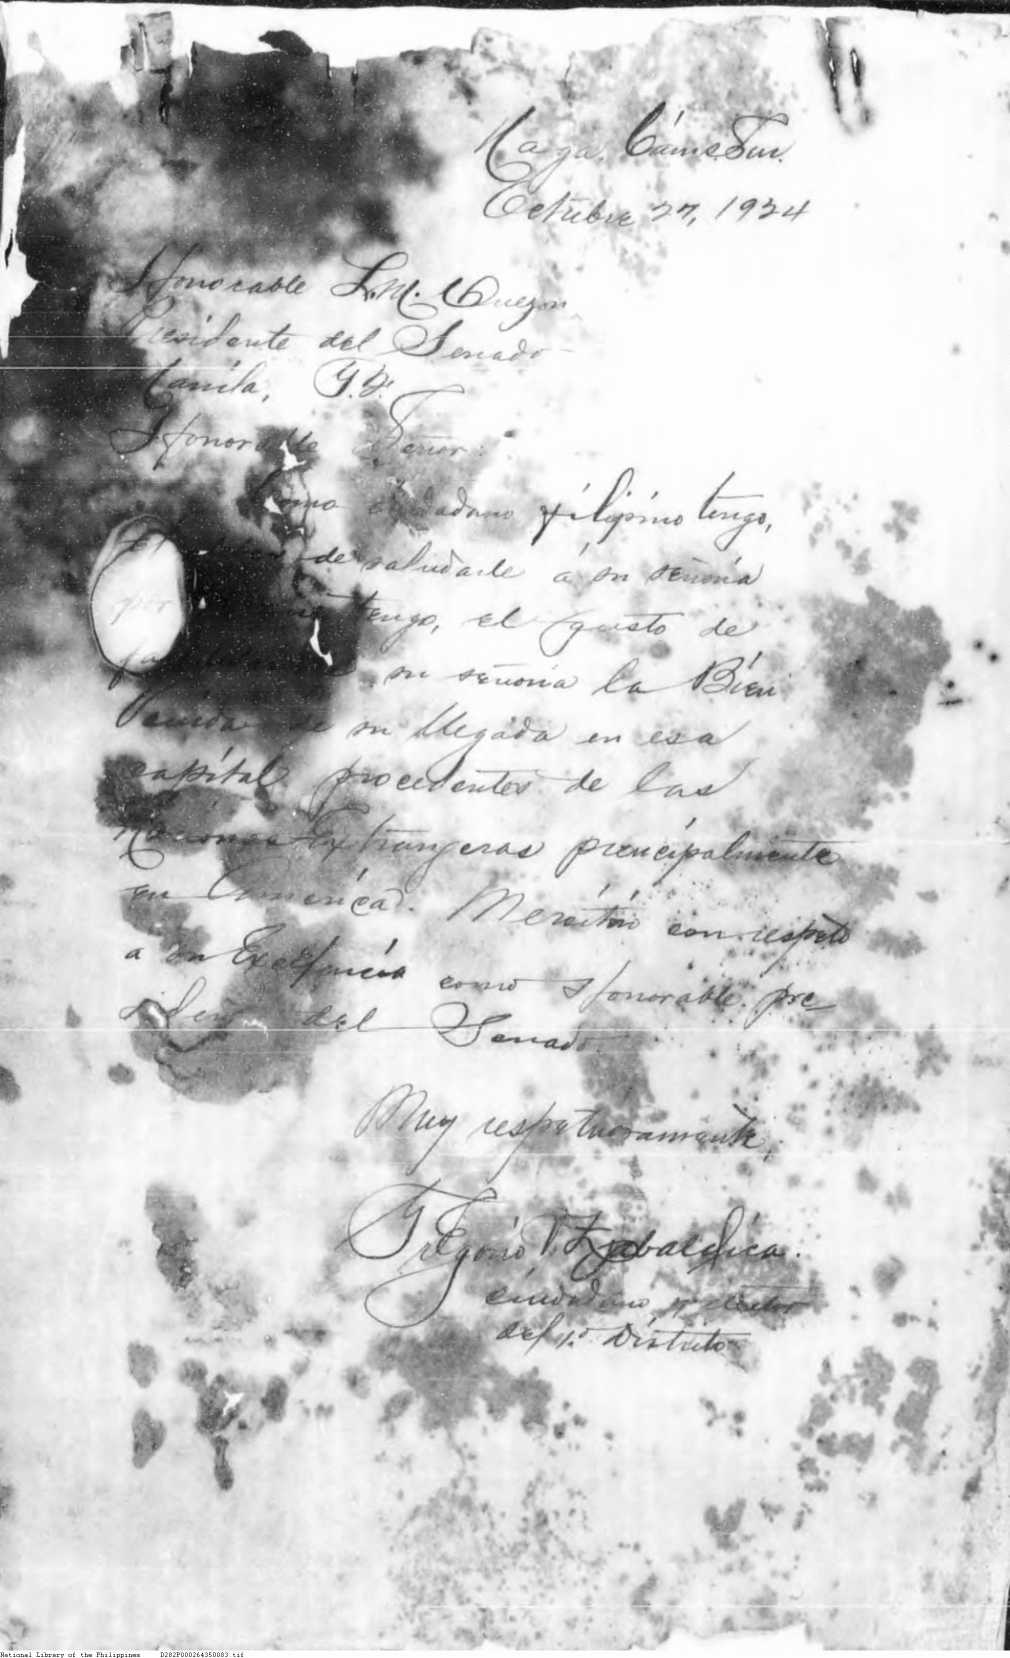 Naga, Cams. Sur.
Octubre 27, 1924
Honorable L. M. Quezon
Presidente del Senado
Manila, I. F.
Honorable Señor:
Como ciudadano filipino tengo,
de saludarle á su señoria
por tengo, el gusto de
su señoria la Bien
Venida de su llegada en esa
capital procedentes de las
Naciones Extrangeras principalmente
en America. con respeto
a su Excelencia como Honorable pre-
del Senado.
Muy respetuosamente,
Gregorio
ciudadano y elector
del 1.º Distrito
National Library of the Philippines D282P000264350083.tif